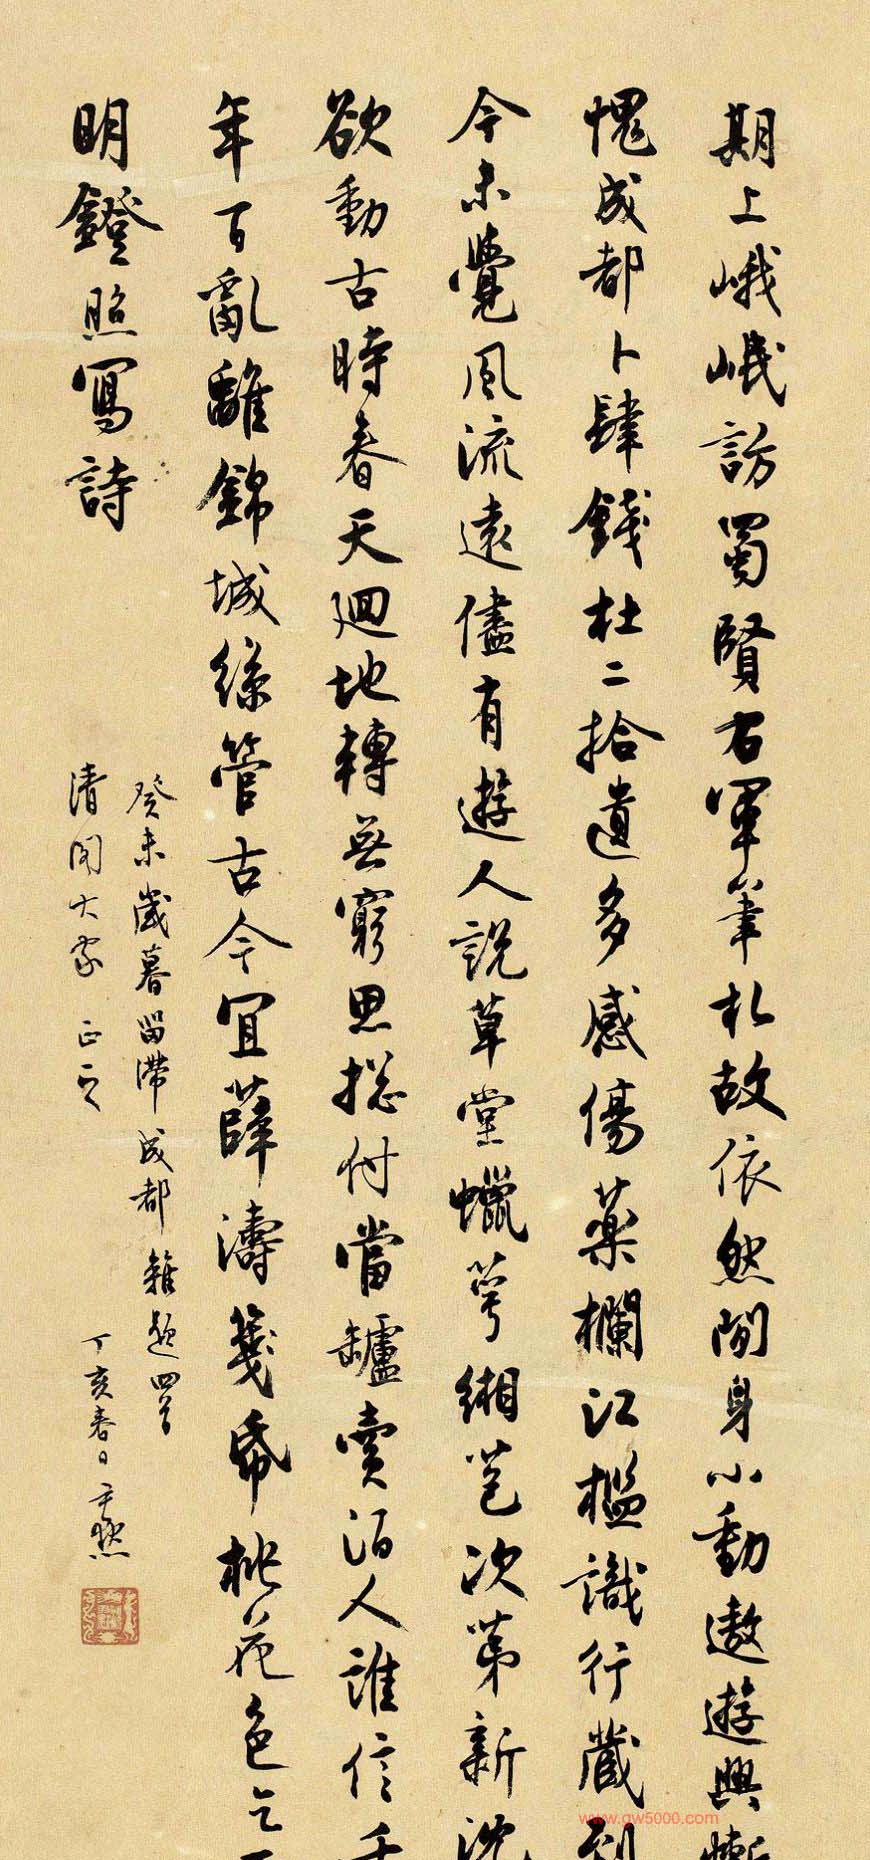 期上峨岷訪蜀賢右軍筆札故依然閒身小動遨遊興慚
愧成都卜肆錢杜二拾遺多感傷藥欄江檻識行藏到
今未覺風流遠儘有遊人說草堂蠟萼緗苞次第新沈
欲動古時春天迴地轉無窮思摠付當罏賣酒人誰信千
年百亂離錦城絲管古今宜薛濤箋紙桃花色乞
明鐙照寫詩
癸未歲暮留滯成都雜題四首
清閣大家 正之
丁亥春日 尹默
www.gw5000.com